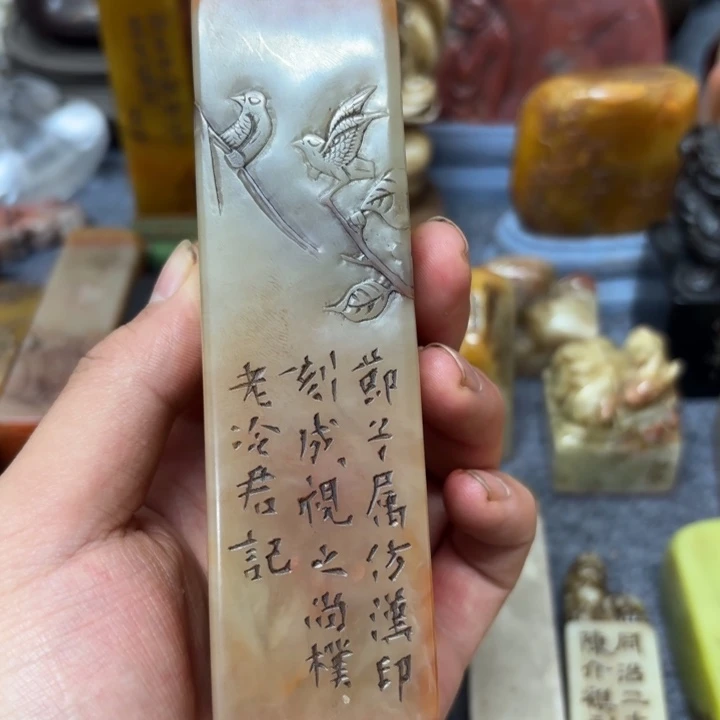 節子属仿漢印
刻成視之尚樸
老冷君記
同治二
陳介祺